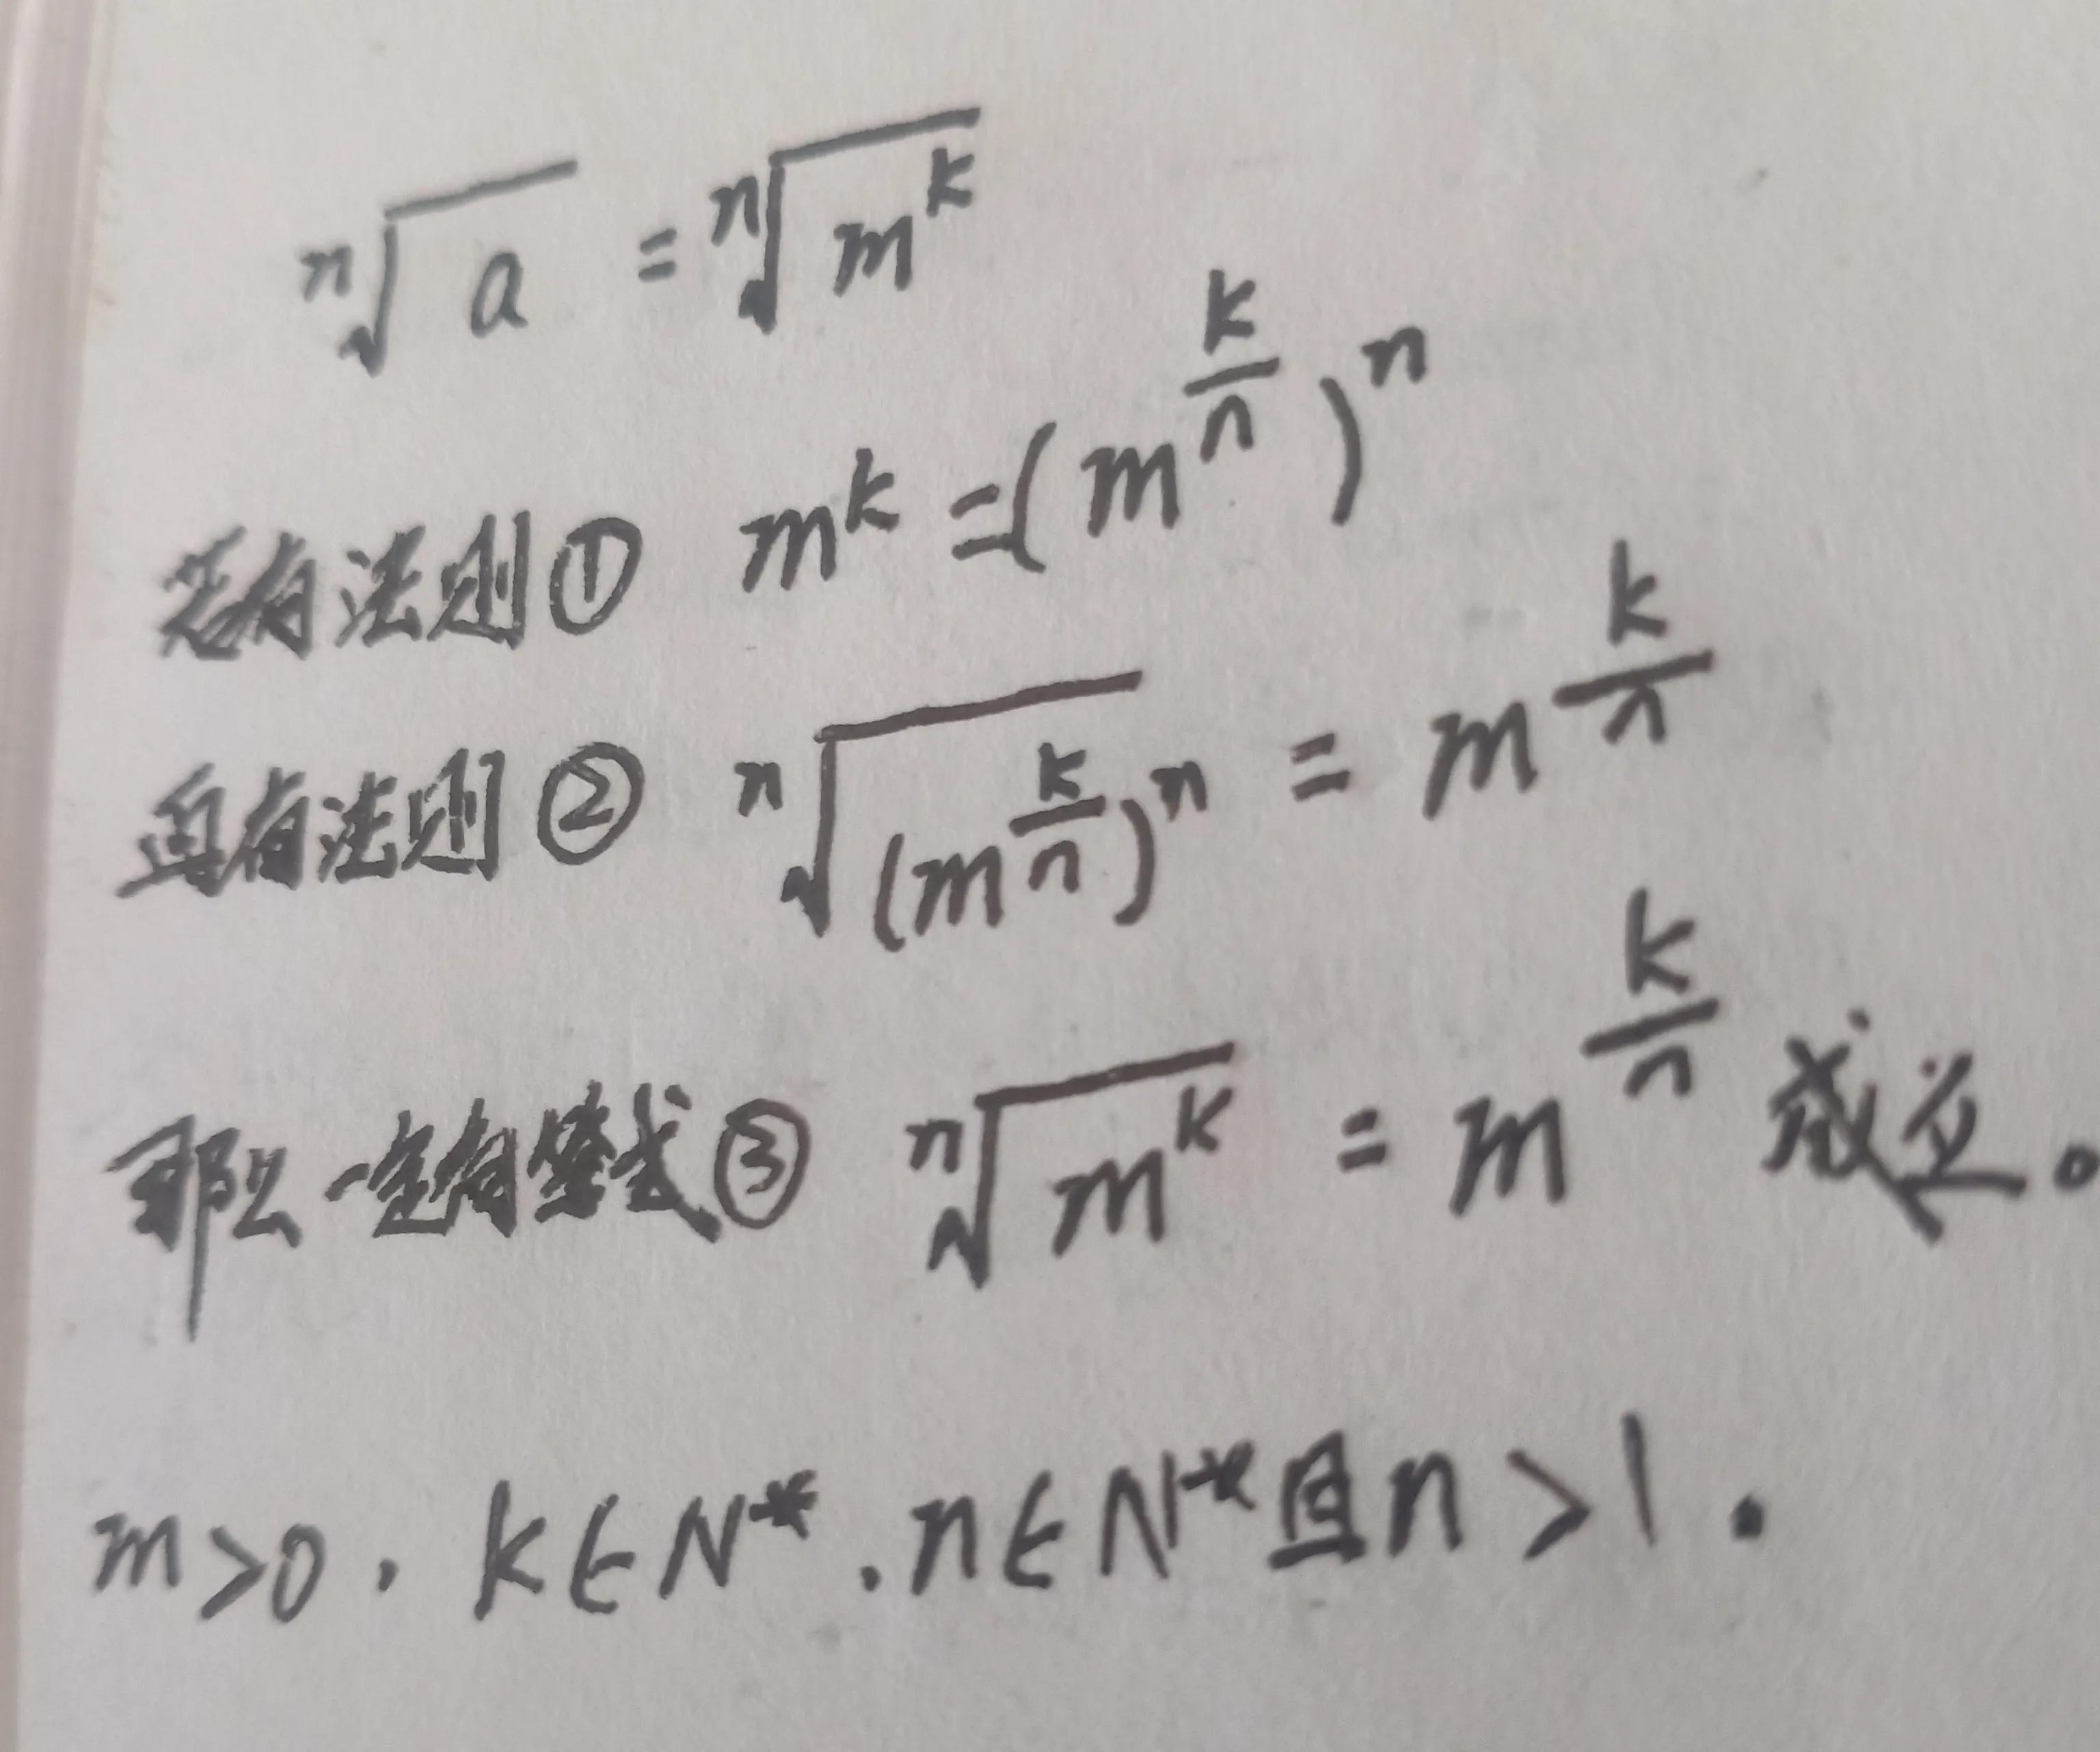 ⁿ√a = ⁿ√(m^k)
若有法则① m^k = (m^(k/n))^n
且有法则② ⁿ√((m^(k/n))^n) = m^(k/n)
那么一定有等式③ ⁿ√(m^k) = m^(k/n) 成立。
m>0, k∈N*, n∈N*且n>1.